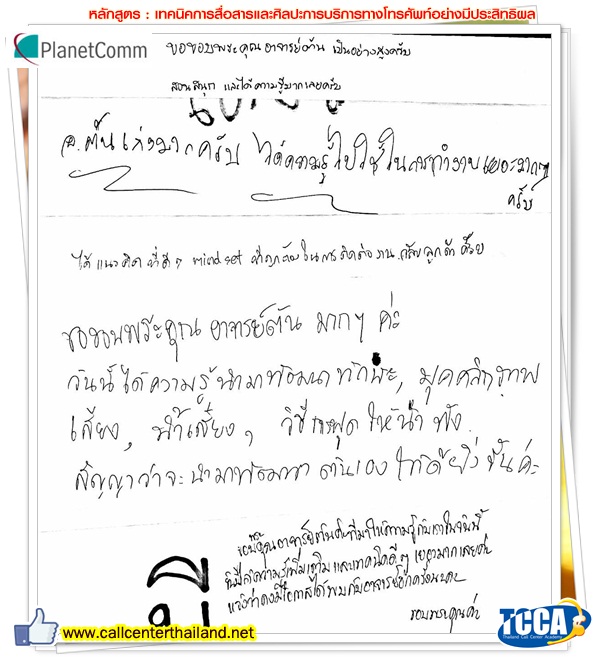 หลักสูตร : เทคนิคการสื่อสารและศิลปะการบริการทางโทรศัพท์อย่างมีประสิทธิผล
PlanetComm
ขอขอบพระคุณ อาจารย์ต้น เป็นอย่างสูงครับ
สอนสนุก และได้ความรู้มากเลยครับ
อ.ต้นเก่งมากครับ ได้ความรู้ไปใช้ในการทำงานเยอะมากๆ
ครับ
ได้แนวคิดที่ดีๆ mind set ที่ถูกต้องในการติดต่องานกับลูกค้าด้วย
ขอขอบพระคุณ อาจารย์ต้น มากๆ ค่ะ
วันนี้ได้ความรู้นำมาพัฒนาทักษะ, บุคคลิกภาพ
เสียง, น้ำเสียง, วิธีการพูดให้น่าฟัง
สัญญาว่าจะนำมาพัฒนาตนเองให้ดียิ่งขึ้นค่ะ
ขอบคุณอาจารย์ต้นค่ะที่มาให้ความรู้กับเราในวันนี้
ได้ความรู้เพิ่มเติมและเทคนิคดีๆ เยอะมากเลยค่ะ
แล้วหวังว่าคงมีโอกาสได้พบกับอาจารย์อีกครั้งนะคะ
ขอบพระคุณค่ะ
www.callcenterthailand.net
TCCA
Thailand Call Center Academy